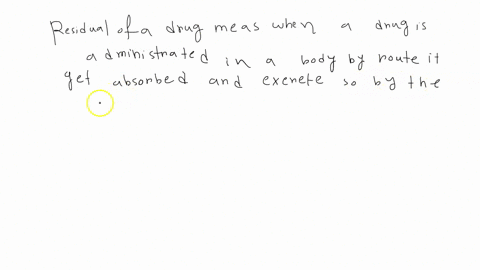 Residual of a drug meas when a drug is
administrated in a body by route it
get absorbed and excrete so by the